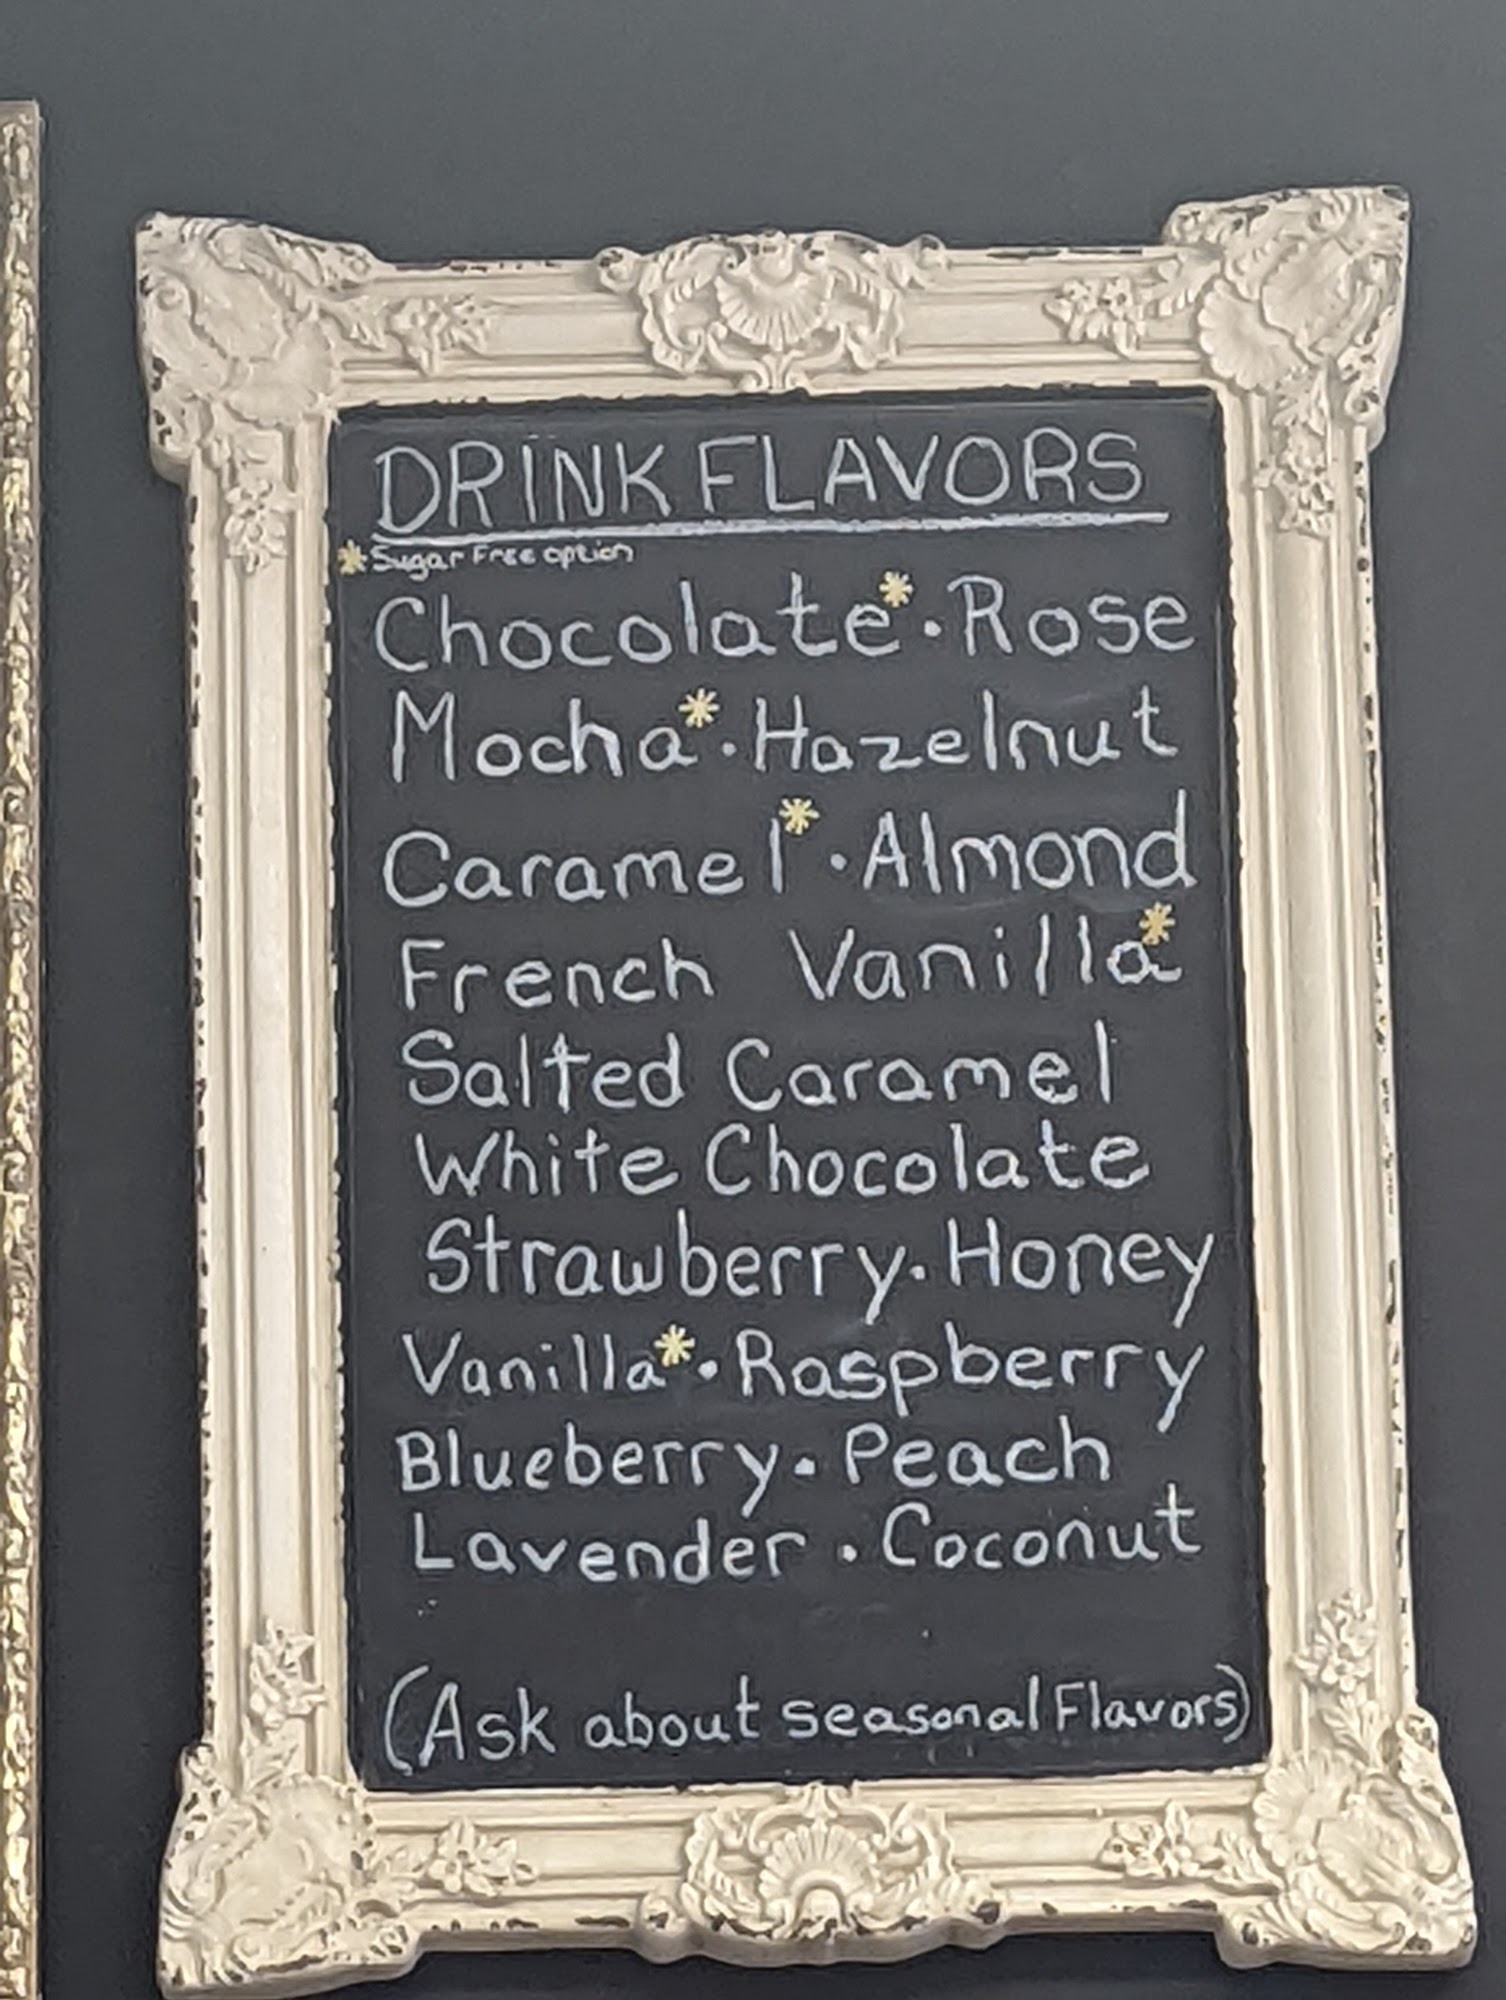 DRINK FLAVORS
*Sugar Free option
Chocolate*·Rose
Mocha*·Hazelnut
Caramel*·Almond
French Vanilla*
Salted Caramel
White Chocolate
Strawberry·Honey
Vanilla*·Raspberry
Blueberry·Peach
Lavender·Coconut
(Ask about seasonal Flavors)